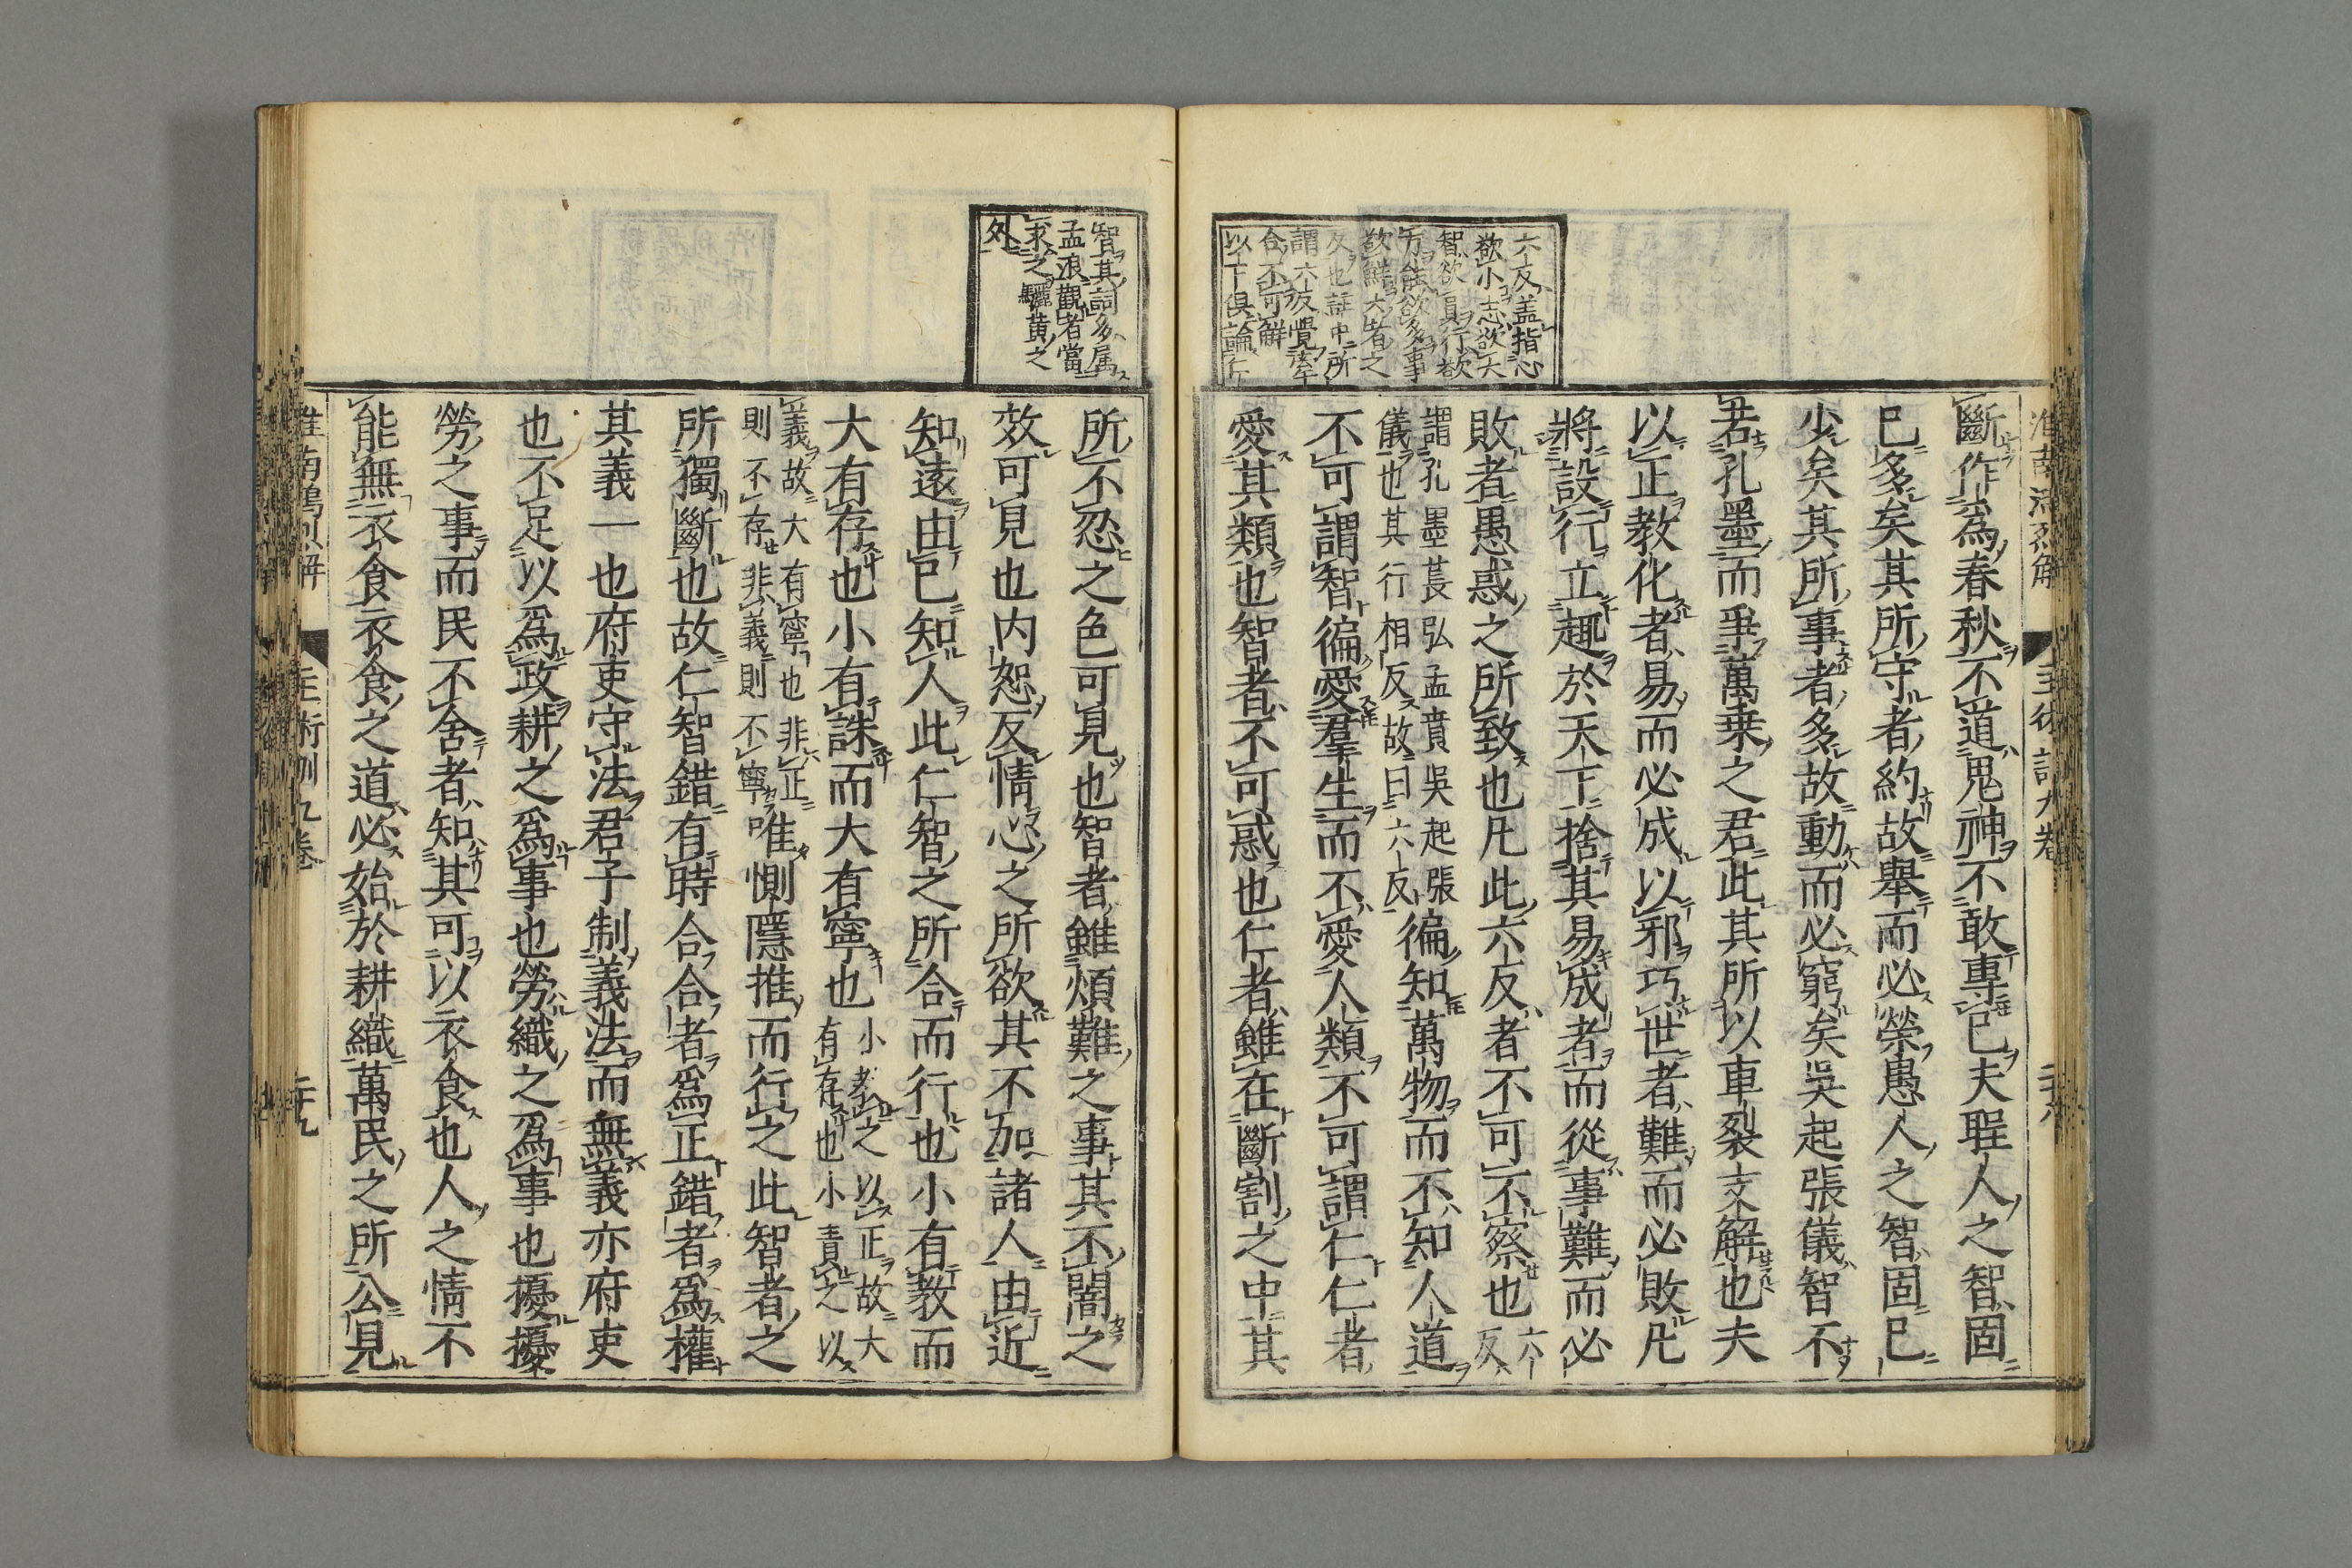 淮南鴻烈解 主術訓九卷
六反盖指心
欲小志欲大
智欲員行欲
方能欲多事
欲鮮六者之
謂六反覺牽
合不可解
以下俱論仁
斷作為春秋不道鬼神不敢專已夫聖人之智固
已多矣其所守者約故舉而必榮愚人之智固已
少矣其所事者多故動而必窮矣吳起張儀智不
若孔墨而爭萬乗之君此其所以車裂支解也夫
以正教化者易而必成以邪巧世者難而必敗凡
將設行立趣於天下捨其易成者而從事難而必
敗者愚惑之所致也凡此六反者不可不察也六反
謂孔墨萇弘孟賁吳起張
儀也其行相反故曰六反徧知萬物而不知人道
不可謂智徧愛羣生而不愛人類不可謂仁仁者
愛其類也智者不可惑也仁者雖在斷割之中其
智其詞多属
孟浪觀者當
求之驪黄之
外
所不忍之色可見也智者雖煩難之事其不闇之
效可見也内恕反情心之所欲其不加諸人由近
知遠由已知人此仁智之所合而行也小有教而
大有存也小有誅而大有寧也小教之以正故大
有存也小責之以
義故大有寧也非正
則不存非義則不寧唯惻隱推而行之此智者之
所獨斷也故仁智錯有時合合者爲正錯者爲權
其義一也府吏守法君子制義法而無義亦府吏
也不足以爲政耕之爲事也勞織之爲事也擾擾
勞之事而民不舍者知其可以衣食也人之情不
能無衣食衣食之道必始於耕織萬民之所公見